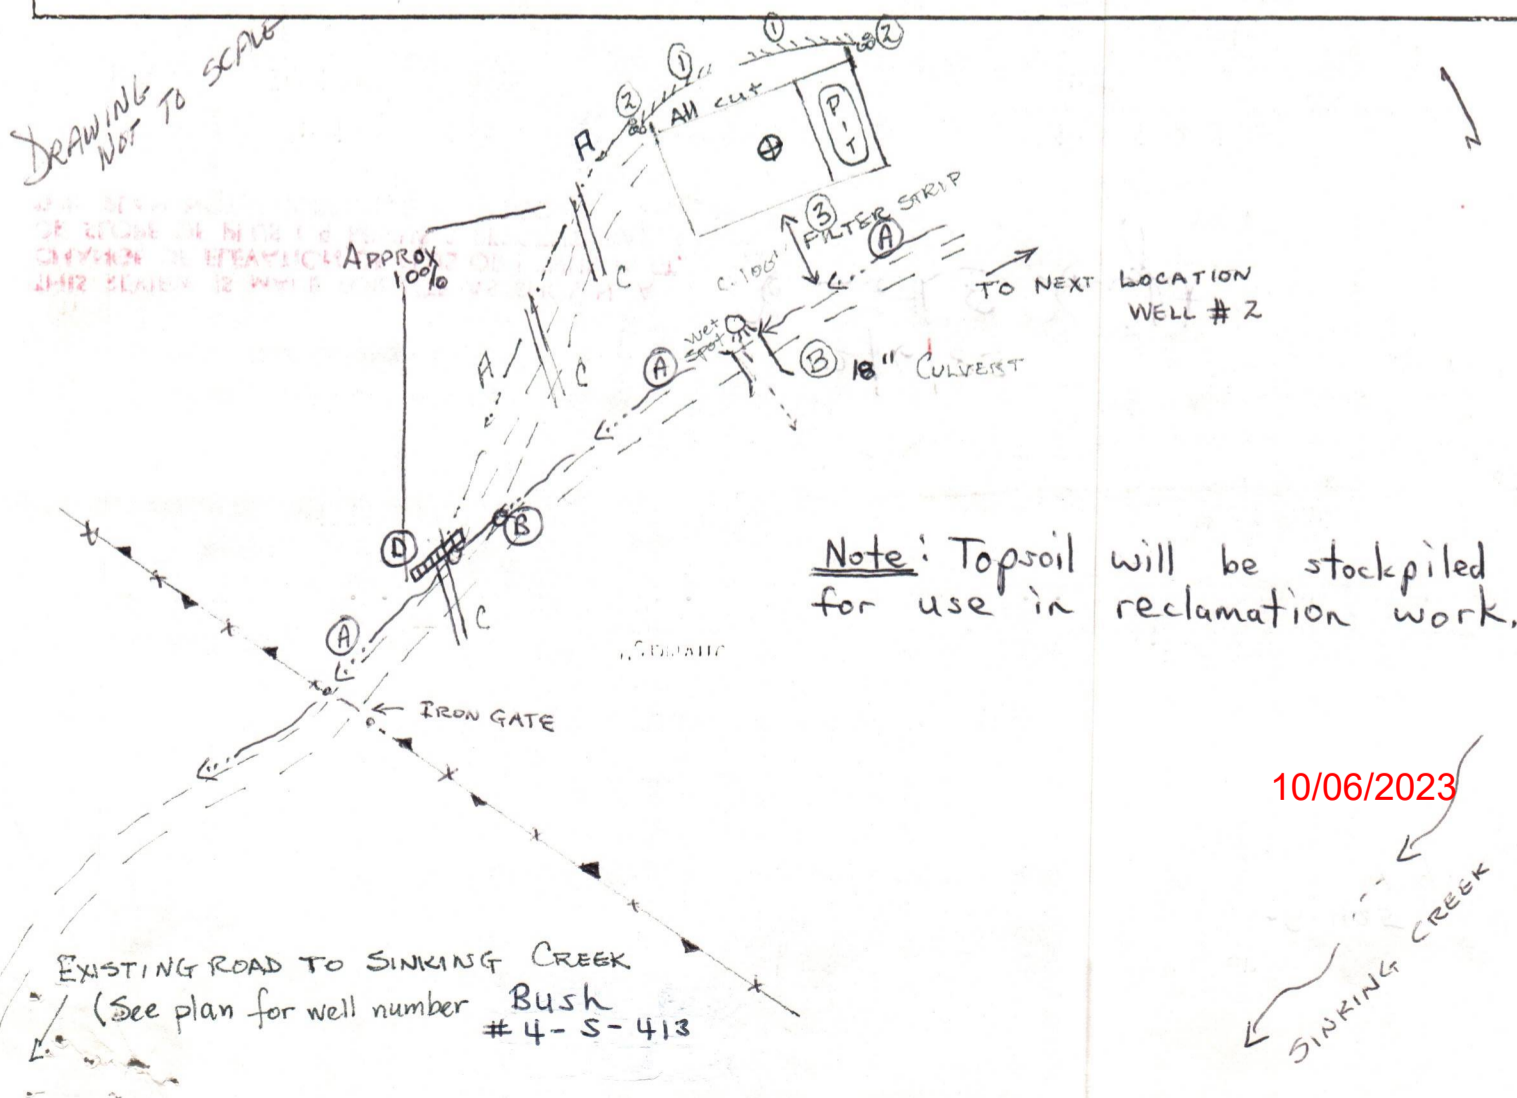 DRAWING
NOT TO SCALE
1
1
2
2
All cut
PIT
A
3
FILTER STRIP
C-100'
A
APPROX
10%
C
TO NEXT LOCATION
WELL # 2
N
Wet
Spot
B 18" CULVERT
A
A
C
B
D
C
A
Note: Topsoil will be stockpiled
for use in reclamation work.
IRON GATE
10/06/2023
SINKING CREEK
EXISTING ROAD TO SINKING CREEK
(See plan for well number Bush
# 4-S-413